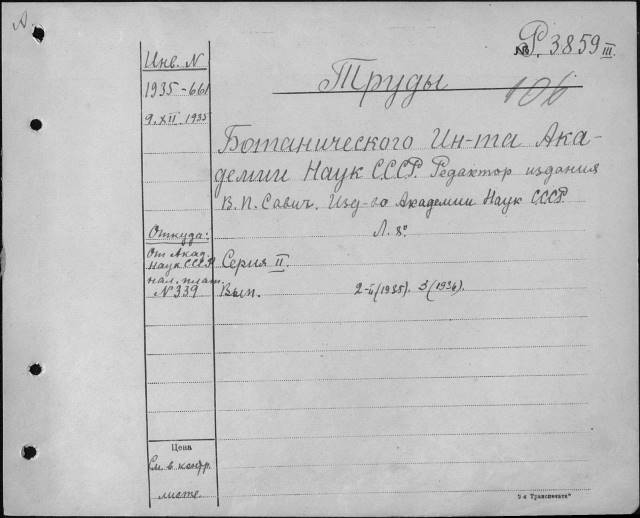 А.
№ Р. 3859 III.
Инв. N
Труды
106
1935-661
9.XII.1935
Ботанического Ин-та Ака-
демии Наук СССР. Редактор издания
В.П. Савич. Изд-во Академии Наук СССР
Л. 8°
Откуда:
От Акад.
Наук СССР
нал. плат.
N 339
Серия II
Вып. 2-й (1935). 3 (1936).
Цена
См. в контр.
листе.